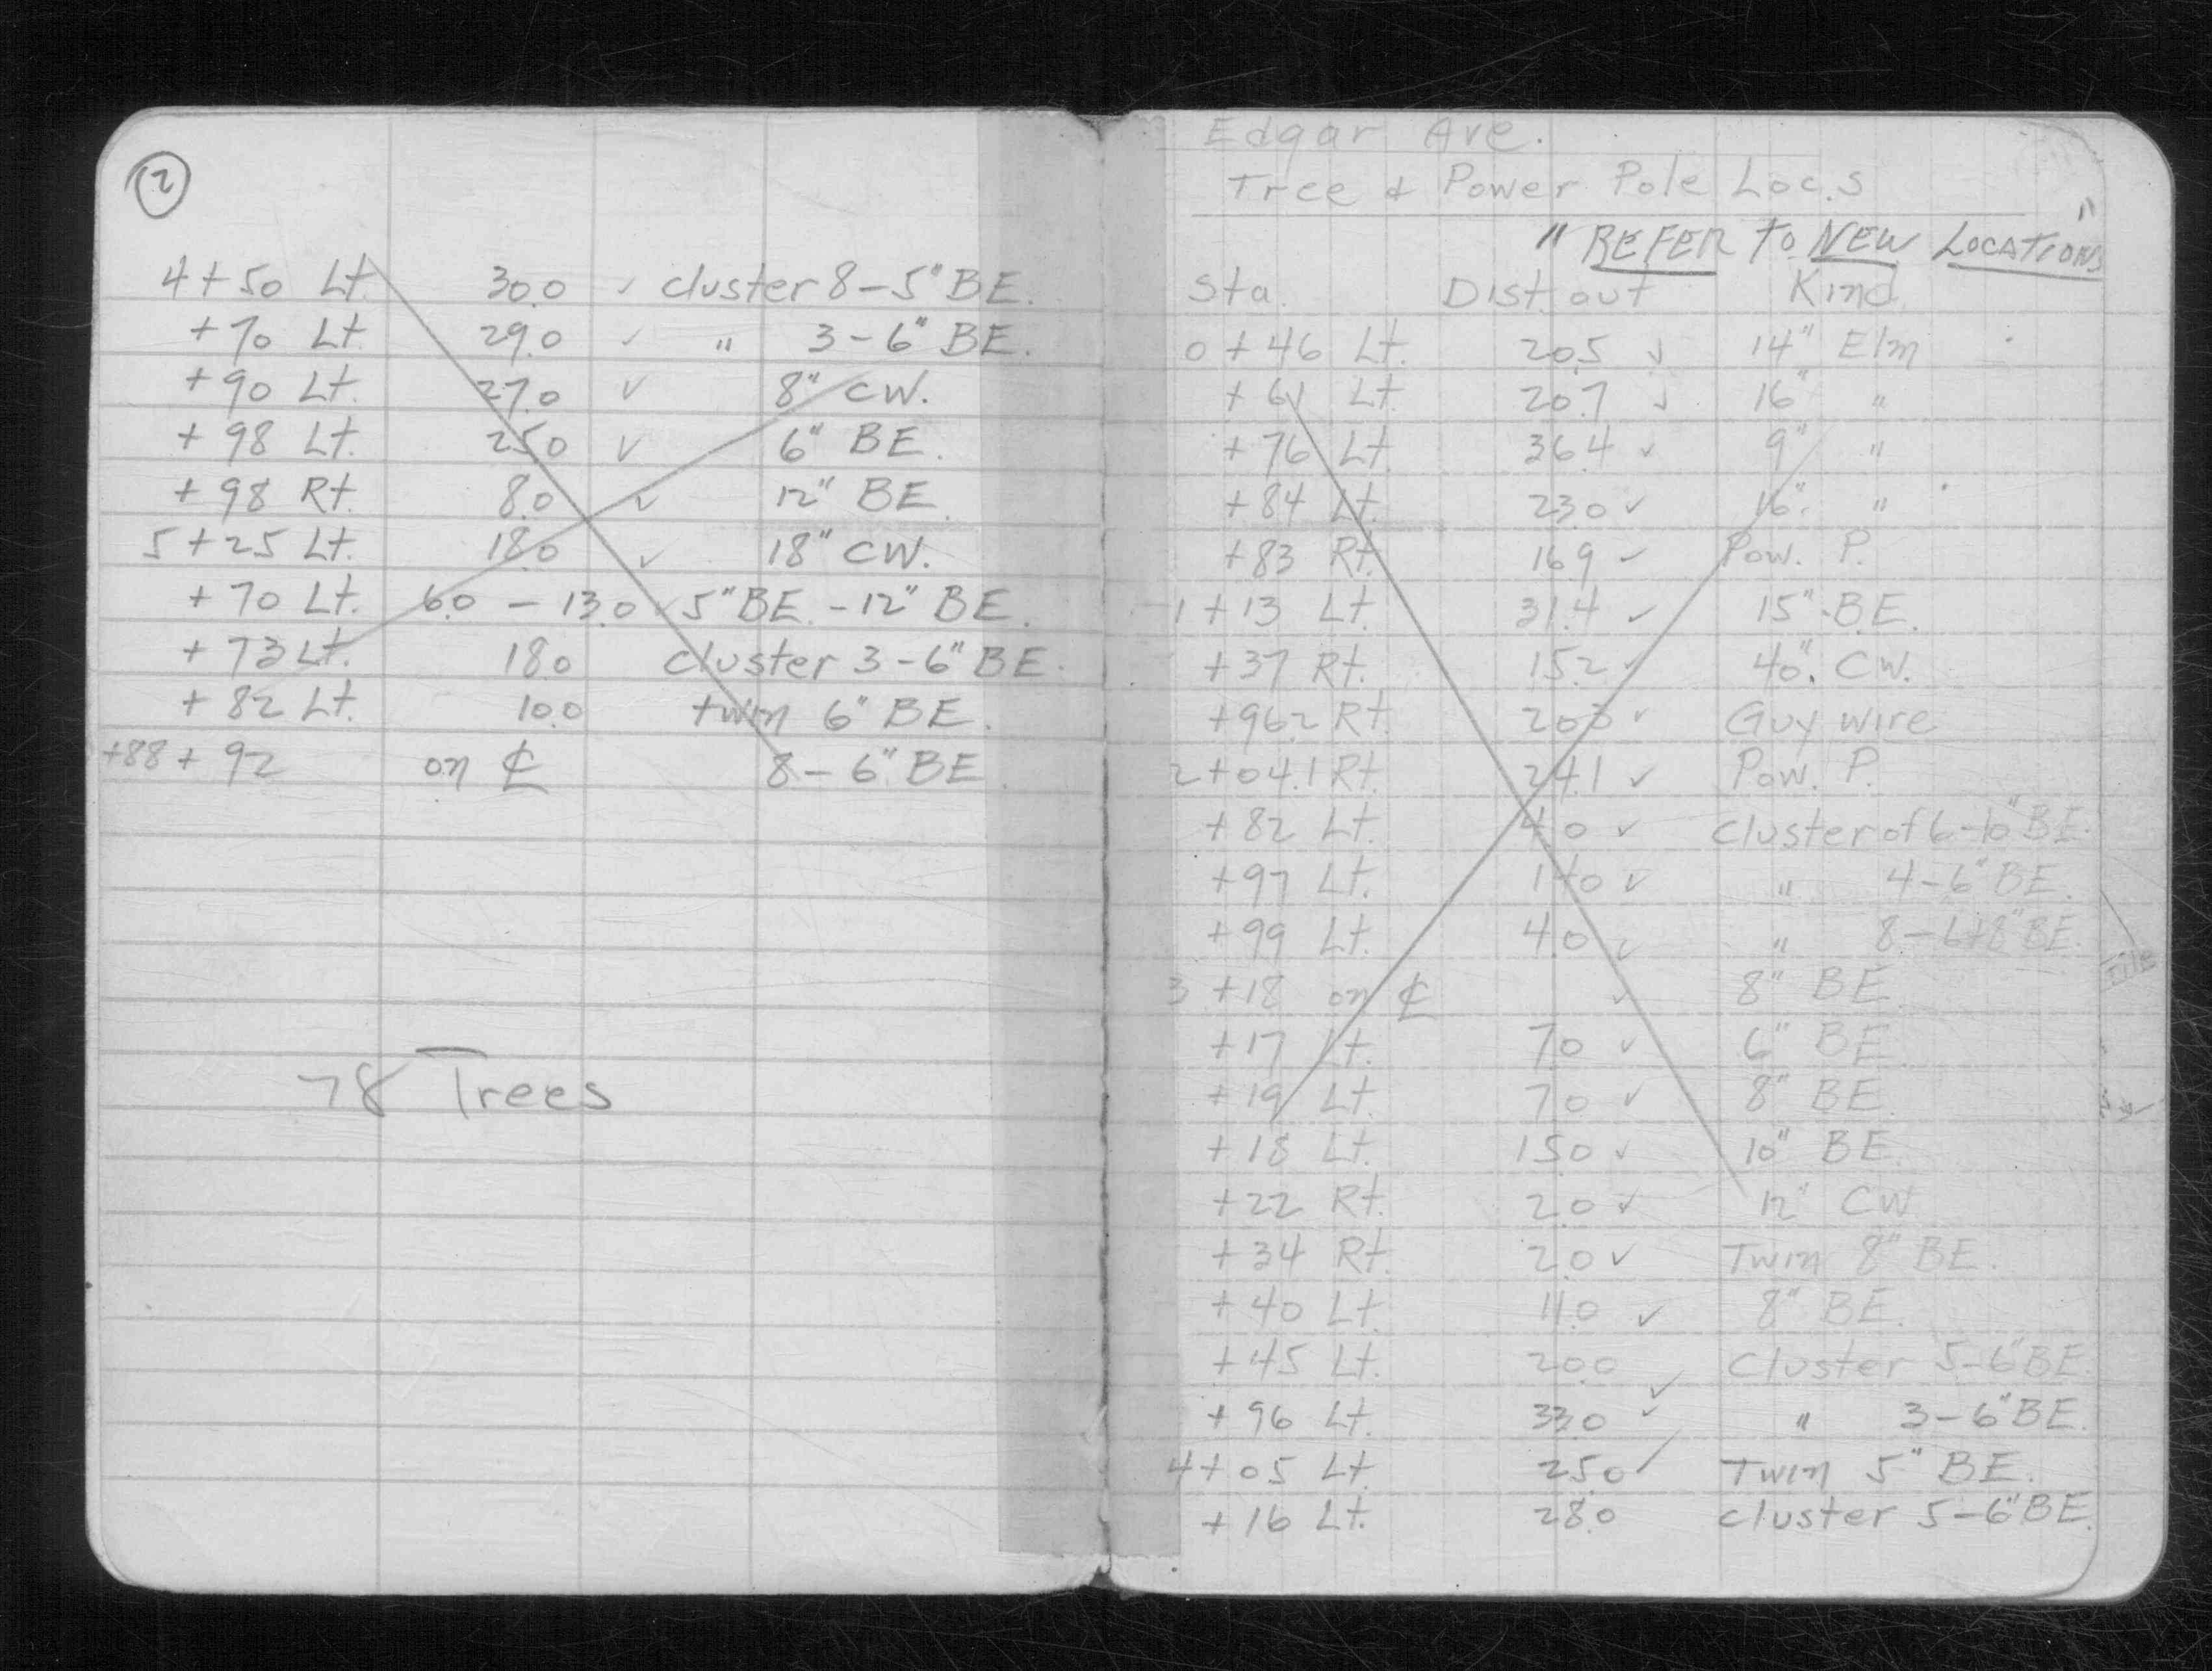 2
4+50 Lt. 30.0 ✓ cluster 8-5" BE.
+70 Lt. 29.0 ✓ " 3-6" BE.
+90 Lt. 27.0 ✓ 8" CW.
+98 Lt. 25.0 ✓ 6" BE.
+98 Rt. 8.0 ✓ 12" BE.
5+25 Lt. 18.0 ✓ 18" CW.
+70 Lt. 6.0 - 13.0 ✓ 5" BE. - 12" BE.
+73 Lt. 18.0 cluster 3-6" BE.
+82 Lt. 10.0 twin 6" BE.
+88 + 92 on ℄ 8-6" BE.
78 Trees
Edgar Ave.
Tree & Power Pole Loc.s
"REFER To NEW LOCATIONS"
Sta. Dist. out Kind
0+46 Lt. 20.5 ✓ 14" Elm
+61 Lt. 20.7 ✓ 16" "
+76 Lt. 36.4 ✓ 9" "
+84 Lt. 23.0 ✓ 16" "
+83 Rt. 16.9 ✓ Pow. P.
1+13 Lt. 31.4 ✓ 15" B.E.
+37 Rt. 15.2 ✓ 40" CW.
+96.2 Rt. 20.3 ✓ Guy wire
2+04.1 Rt. 24.1 ✓ Pow. P.
+82 Lt. 4.0 ✓ cluster of 6-10" BE.
+97 Lt. 14.0 ✓ " 4-6" BE.
+99 Lt. 4.0 ✓ " 8-6+8" BE.
3+18 on ℄ ✓ 8" BE.
+17 Lt. 7.0 ✓ 6" BE.
+19 Lt. 7.0 ✓ 8" BE.
+18 Lt. 15.0 ✓ 10" BE.
+22 Rt. 2.0 ✓ 12" CW
+34 Rt. 2.0 ✓ Twin 8" BE.
+40 Lt. 11.0 ✓ 8" BE.
+45 Lt. 20.0 ✓ Cluster 5-6" BE.
+96 Lt. 33.0 ✓ " 3-6" BE.
4+05 Lt. 25.0 ✓ Twin 5" BE.
+16 Lt. 28.0 cluster 5-6" BE.